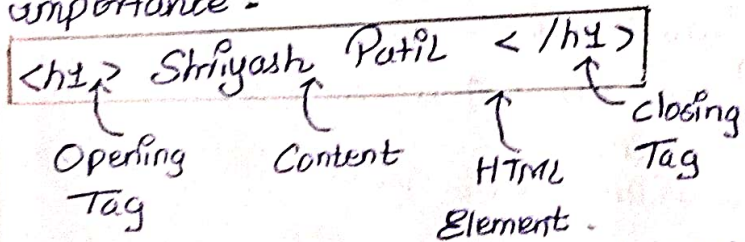 importance -
<h1> Shriyash Patil </h1>
Opening Tag
Content
HTML Element.
Closing Tag